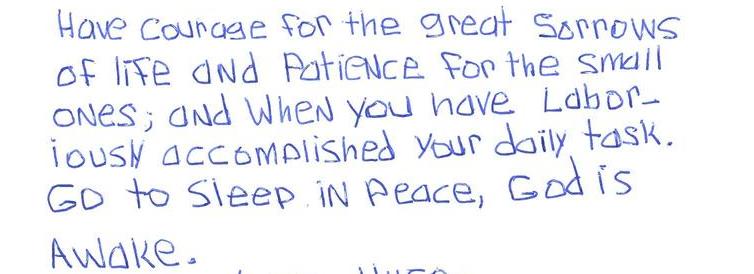 Have Courage for the great Sorrows
of life and Patience for the small
ones; and when you have Labor-
iously accomplished your daily task.
Go to Sleep in Peace, God is
Awake.